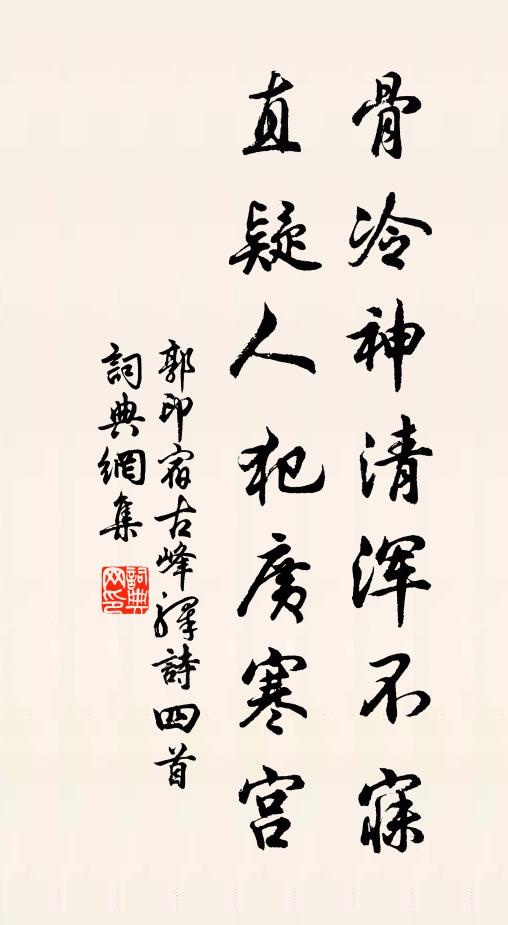 骨冷神清浑不寐
直疑人犯廣寒宫
郭印宿古峰驛詩四首
詞典網集
詞典網印